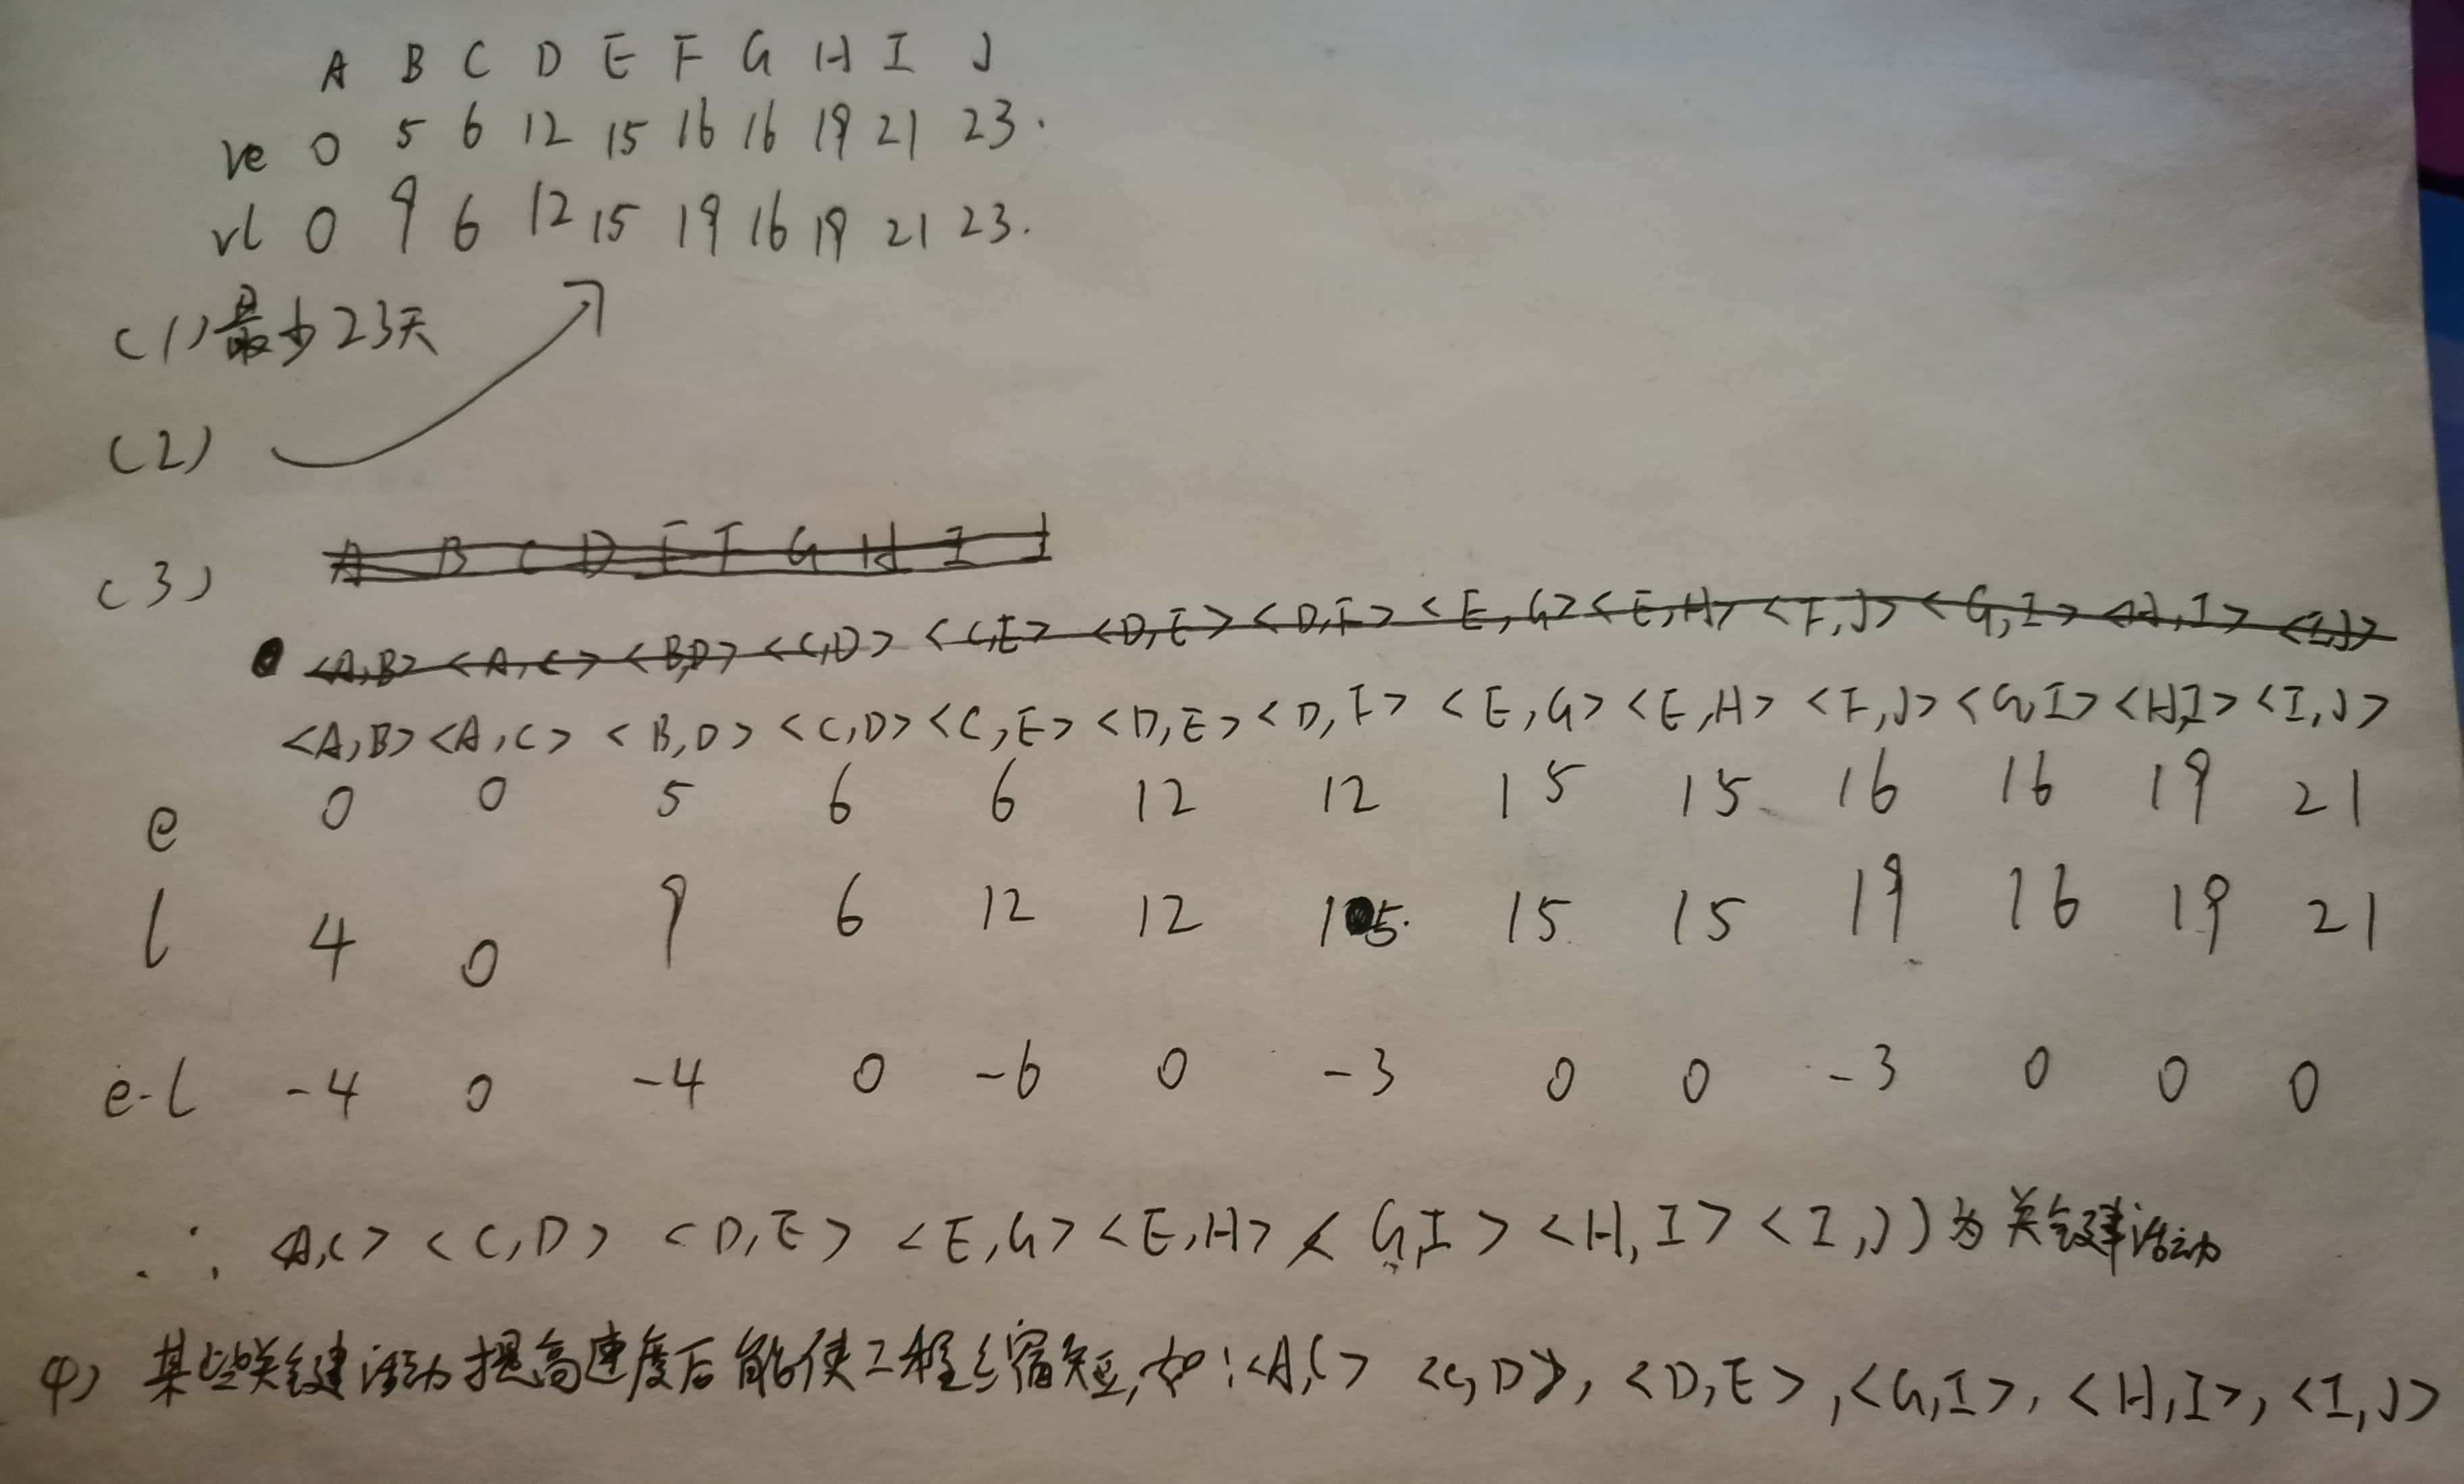 A B C D E F G H I J
ve 0 5 6 12 15 16 16 19 21 23.
vl 0 9 6 12 15 19 16 19 21 23.
(1) 最少23天
(2)
(3) A B C D E F G H I J
<A,B> <A,C> <B,D> <C,D> <C,E> <D,E> <D,F> <E,G> <E,H> <F,J> <G,I> <H,I> <I,J>
<A,B> <A,C> <B,D> <C,D> <C,E> <D,E> <D,F> <E,G> <E,H> <F,J> <G,I> <H,I> <I,J>
e 0 0 5 6 6 12 12 15 15 16 16 19 21
l 4 0 9 6 12 12 15. 15 15 19 16 19 21
e-l -4 0 -4 0 -6 0 -3 0 0 -3 0 0 0
∴ <A,C> <C,D> <D,E> <E,G> <E,H> <G,I> <H,I> <I,J> 为关键活动
4) 某些关键活动提高速度后能使工程缩短,如:<A,C> <C,D>, <D,E>, <G,I>, <H,I>, <I,J>